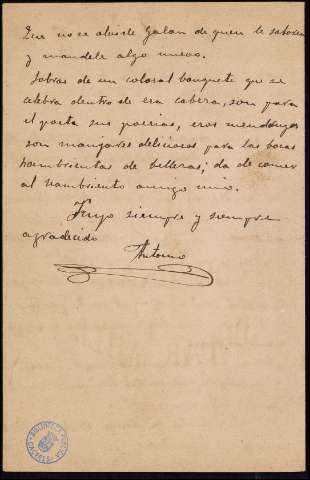 Que no se olvide Galán de quien le saborea
y mandele algo nuevo.
Sobras de un colosal banquete que se
celebra dentro de esa cabeza, son para
el poeta sus poesias, esos mendrugos
son manjares deliciosos para las bocas
hambrientas de bellezas; da de comer
al hambriento amigo mio.
Suyo siempre y siempre
agradecido
Antonio
BIBLIOTECA PUBLICA
CACERES